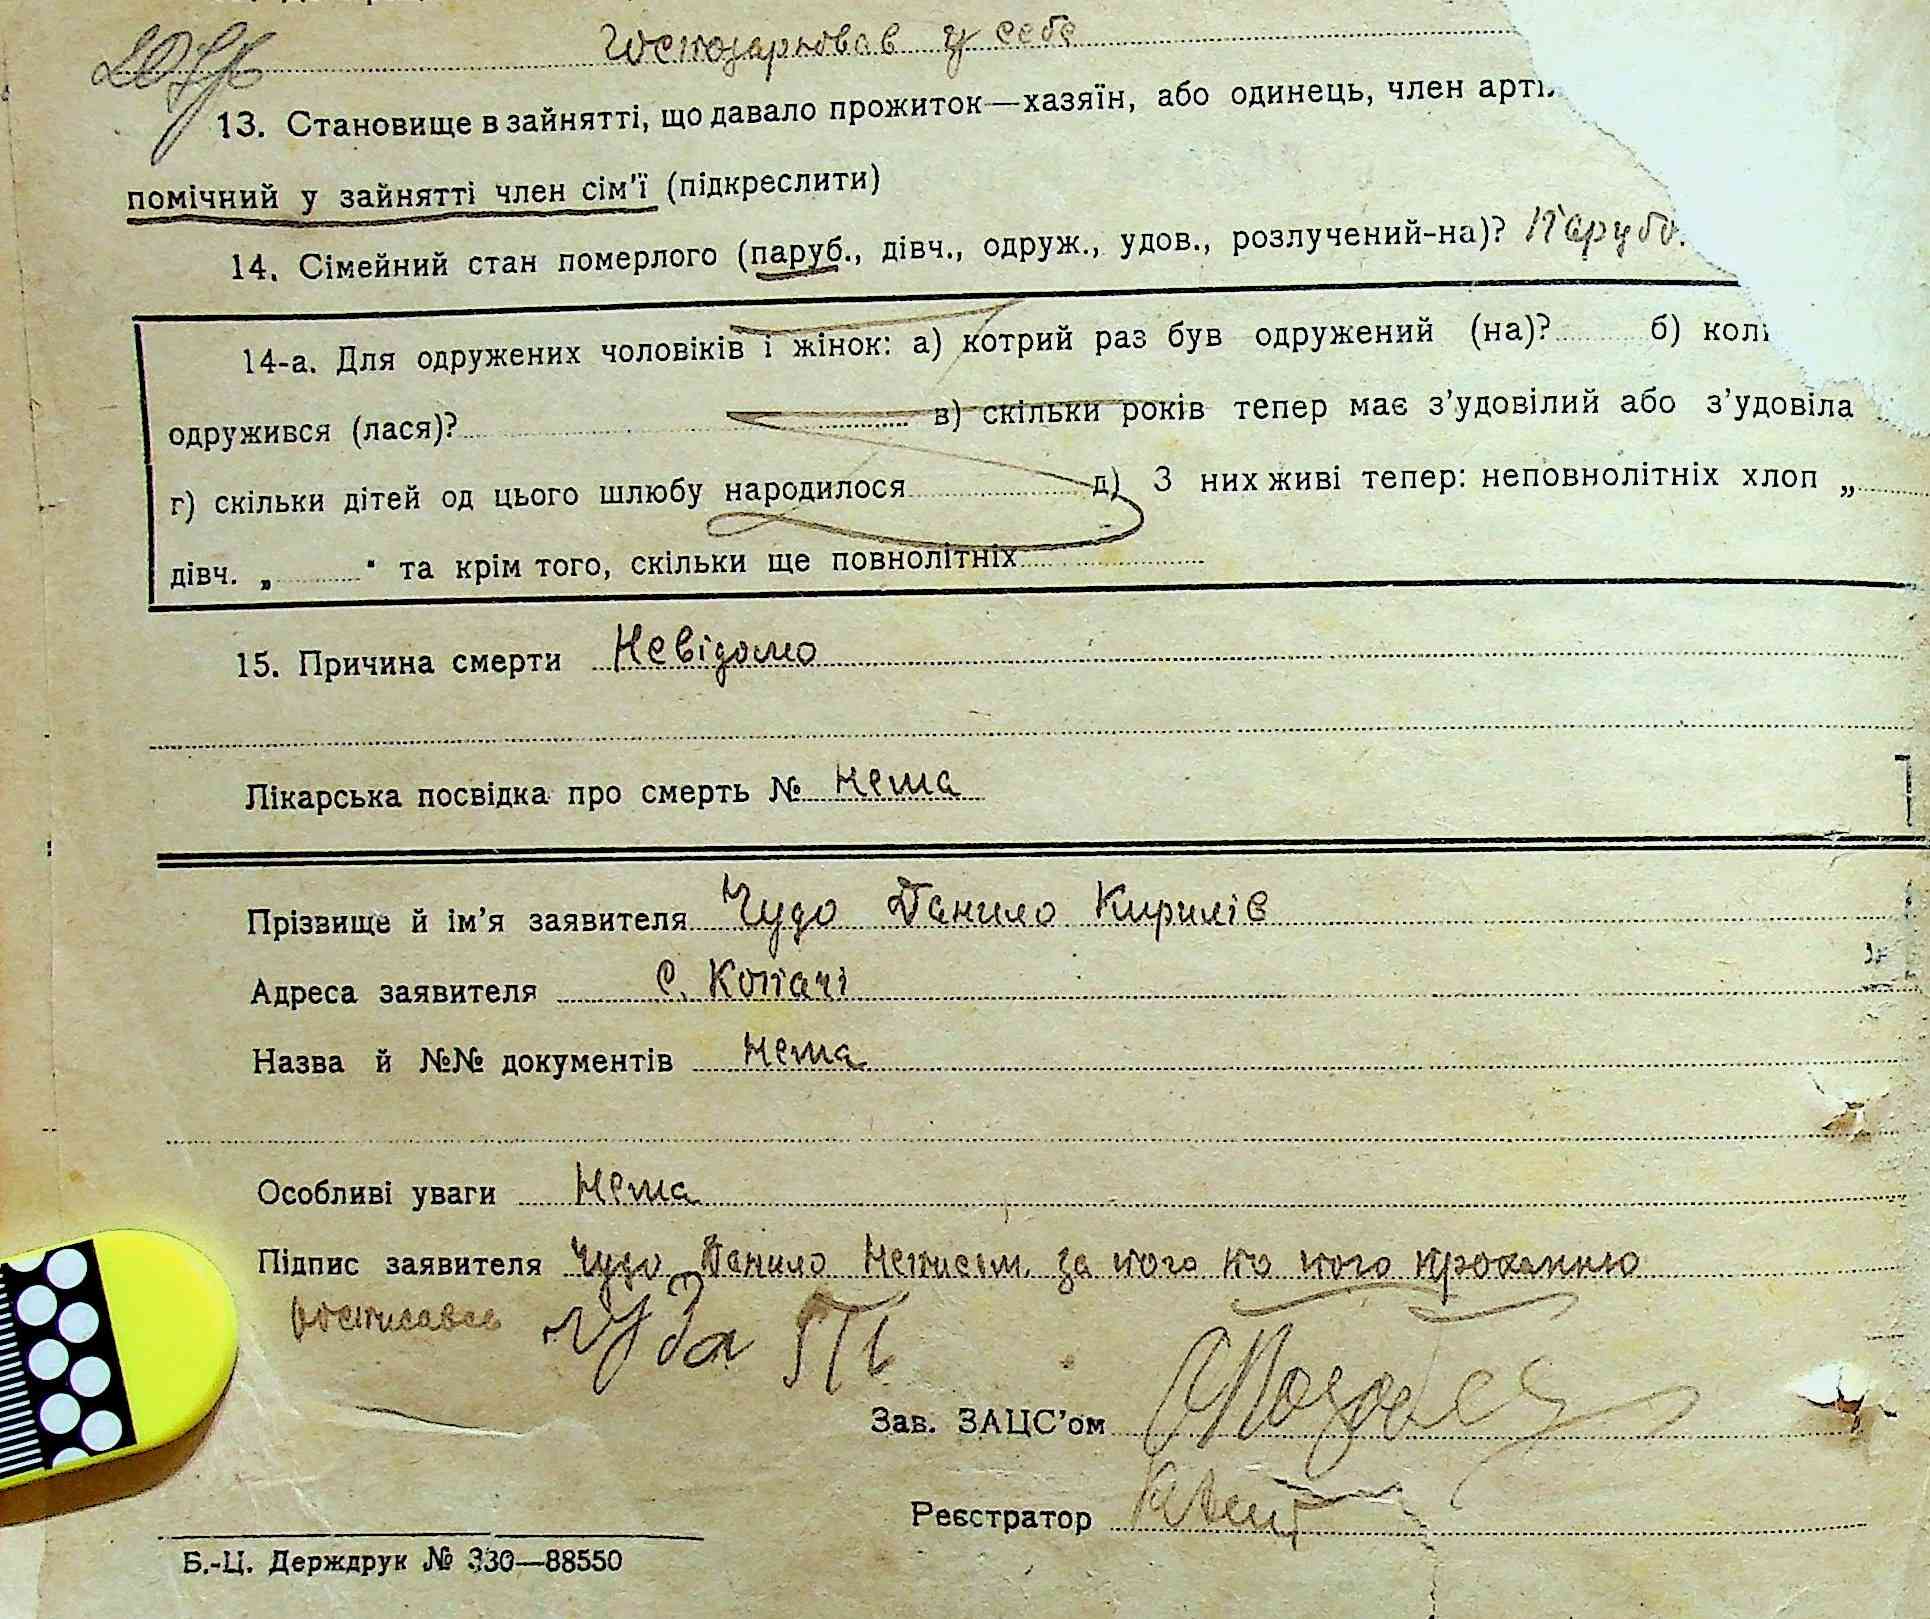 Господарював у себе
13. Становище в зайнятті, що давало прожиток—хазяїн, або одинець, член арті
помічний у зайнятті член сім'ї (підкреслити)
14. Сімейний стан померлого (паруб., дівч., одруж., удов., розлучений-на)? Парубо.
14-а. Для одружених чоловіків і жінок: а) котрий раз був одружений (на)? б) кол
одружився (лася)? в) скільки років тепер має з'удовілий або з'удовіла
г) скільки дітей од цього шлюбу народилося д) З них живі тепер: неповнолітніх хлоп „
дівч. „ " та крім того, скільки ще повнолітніх
15. Причина смерти Невідомо
Лікарська посвідка про смерть № Нема
Прізвище й ім'я заявителя Чудо Данило Кирилів
Адреса заявителя с. Копачі
Назва й №№ документів Нема
Особливі уваги Нема
Підпис заявителя Чудо Данило Неписьм. за його по його проханню
росписався
Зав. ЗАЦС'ом
Реєстратор
Б.-Ц. Держдрук № 330—88550